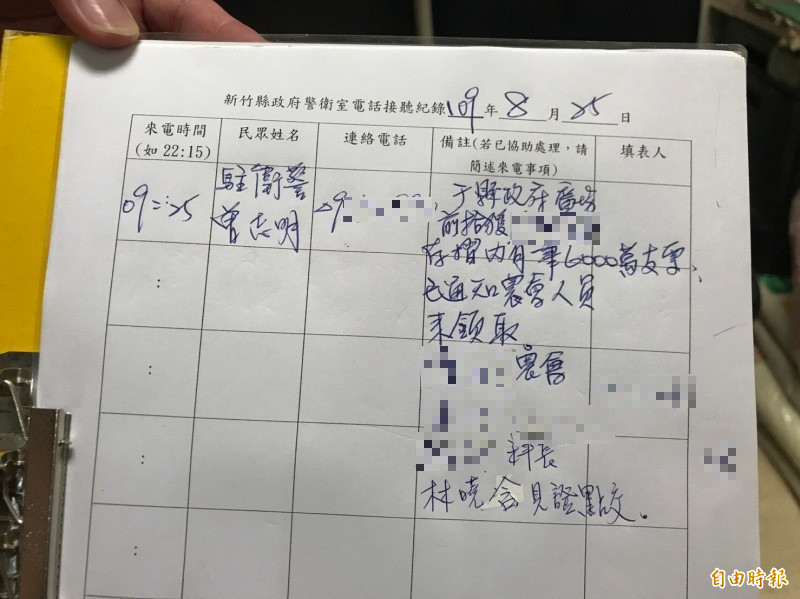 新竹縣政府警衛室電話接聽紀錄 109 年 8 月 25 日
來電時間
(如 22:15)
民眾姓名
連絡電話
備註(若已協助處理，請
簡述來電事項)
填表人
09:25
駐衛警
曾志明
09
于縣政府廣場
前拾獲
存摺內有一筆6000萬支票、
已通知農會人員
來領取。
:
農會
:
科長
:
林曉 見證點交。
:
自由時報